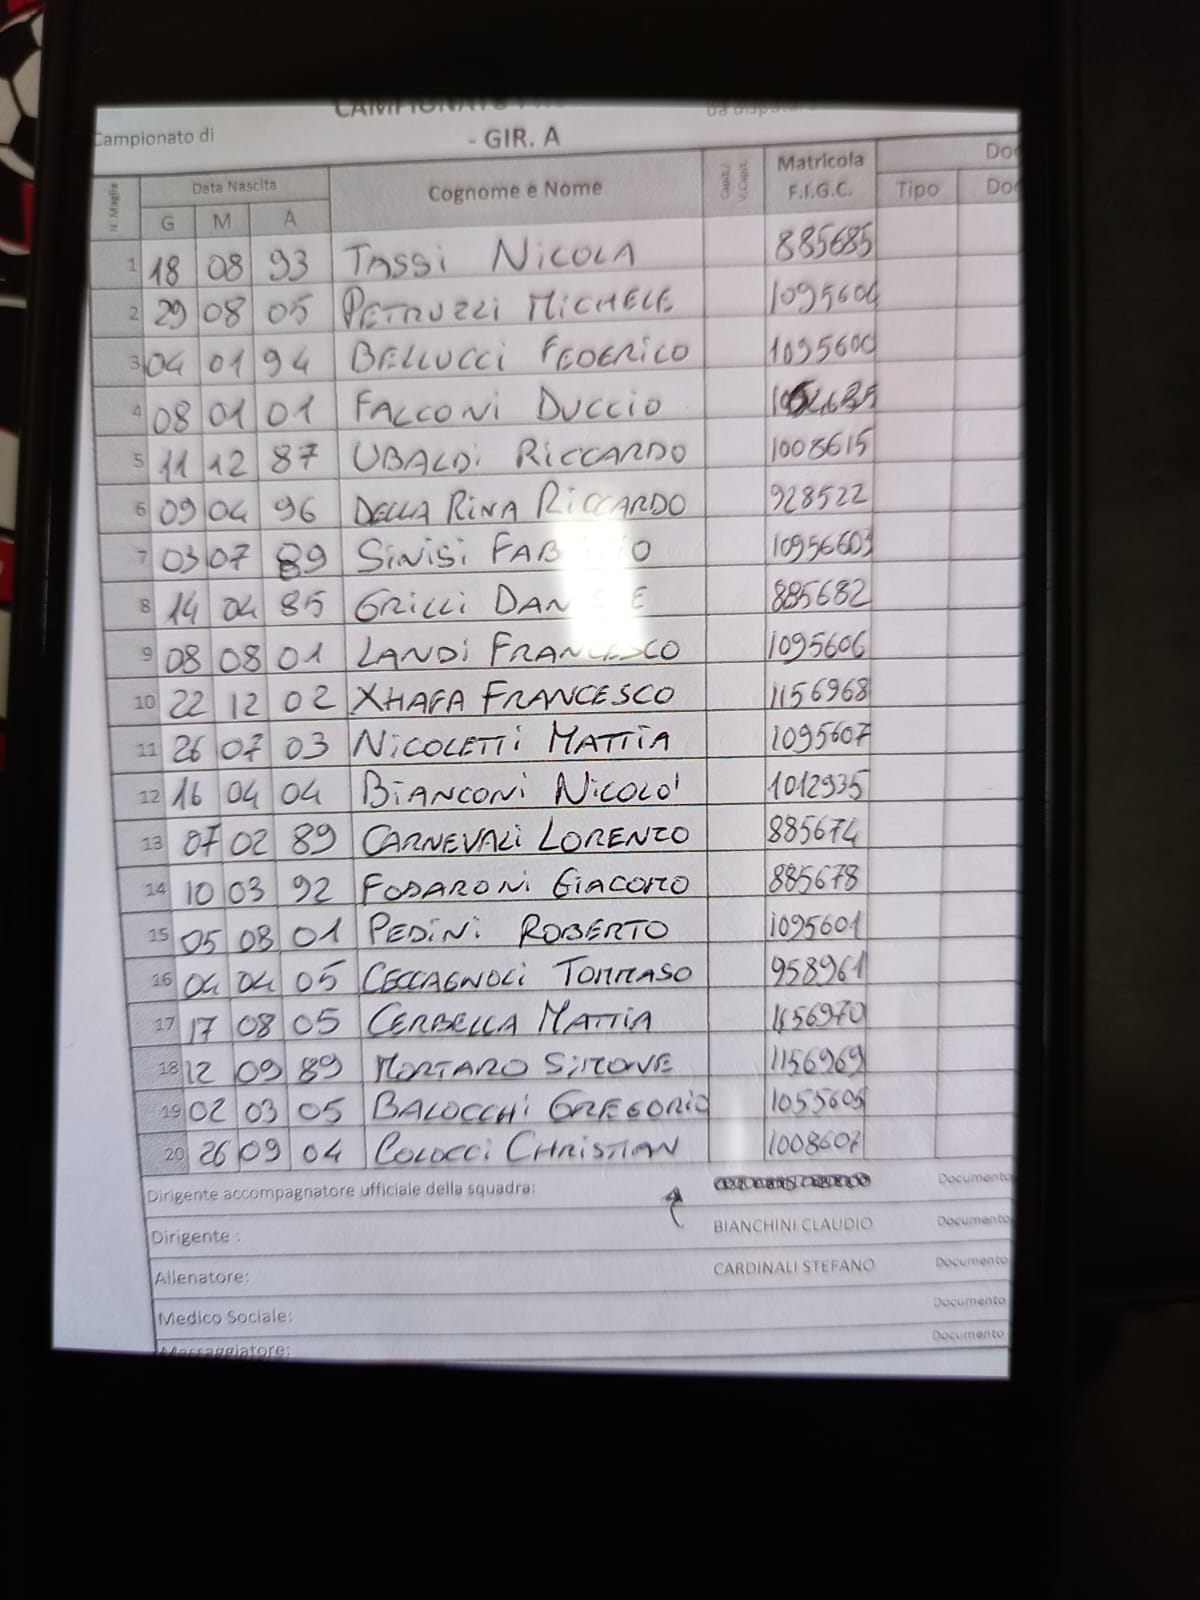 Campionato di
- GIR. A
N. Maglia Data Nascita Cognome e Nome Capit./ V.Capit. Matricola F.I.G.C. Tipo
G M A
1 18 08 93 TASSI NICOLA 885685
2 29 08 05 PETRUZZI MICHELE 1095604
3 04 01 94 BELLUCCI FEDERICO 1095600
4 08 01 01 FALCONI DUCCIO
5 11 12 87 UBALDI RICCARDO 1008615
6 09 04 96 DELLA RINA RICCARDO 928522
7 03 07 89 SINISI 10956603
8 14 04 85 GRILLI 885682
9 08 08 01 LANDI FRANCESCO 1095606
10 22 12 02 XHAFA FRANCESCO 1156968
11 26 07 03 NICOLETTI MATTIA 1095607
12 16 04 04 BIANCONI NICOLO' 1012935
13 07 02 89 CARNEVALI LORENZO 885674
14 10 03 92 FODARONI GIACOMO 885678
15 05 08 01 PEDINI ROBERTO 1095601
16 04 04 05 CECCAGNOLI TOMMASO 958961
17 17 08 05 CERBELLA MATTIA 1156970
18 12 09 89 MORTARO SIMONE 1156969
19 02 03 05 BALOCCHI GREGORIO 1055605
20 26 09 04 COLOCCI CHRISTIAN 1008607
Dirigente accompagnatore ufficiale della squadra: Documento
Dirigente : BIANCHINI CLAUDIO Documento
Allenatore: CARDINALI STEFANO Documento
Medico Sociale: Documento
Massaggiatore: Documento